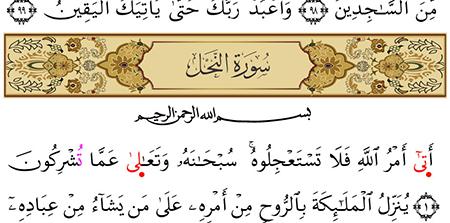 مِّنَ ٱلسَّٰجِدِينَ ﴿٩٨﴾ وَٱعۡبُدۡ رَبَّكَ حَتَّىٰ يَأۡتِيَكَ ٱلۡيَقِينُ ﴿٩٩﴾
سُورَةُ النَّحْلِ
بسم الله الرحمن الرحيم
أَتَىٰٓ أَمۡرُ ٱللَّهِ فَلَا تَسۡتَعۡجِلُوهُۚ سُبۡحَٰنَهُۥ وَتَعَٰلَىٰ عَمَّا تُشۡرِكُونَ
﴿١﴾ يُنَزِّلُ ٱلۡمَلَٰٓئِكَةَ بِٱلرُّوحِ مِنۡ أَمۡرِهِۦ عَلَىٰ مَن يَشَآءُ مِنۡ عِبَادِهِۦٓ